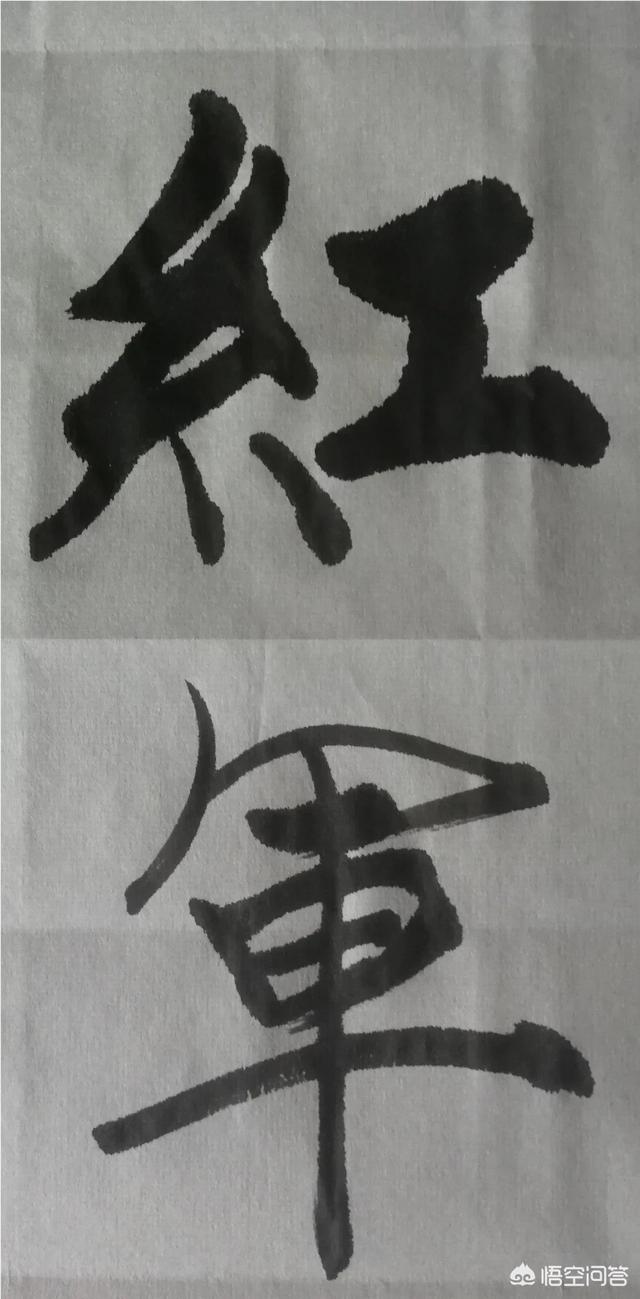 紅
軍
悟空问答